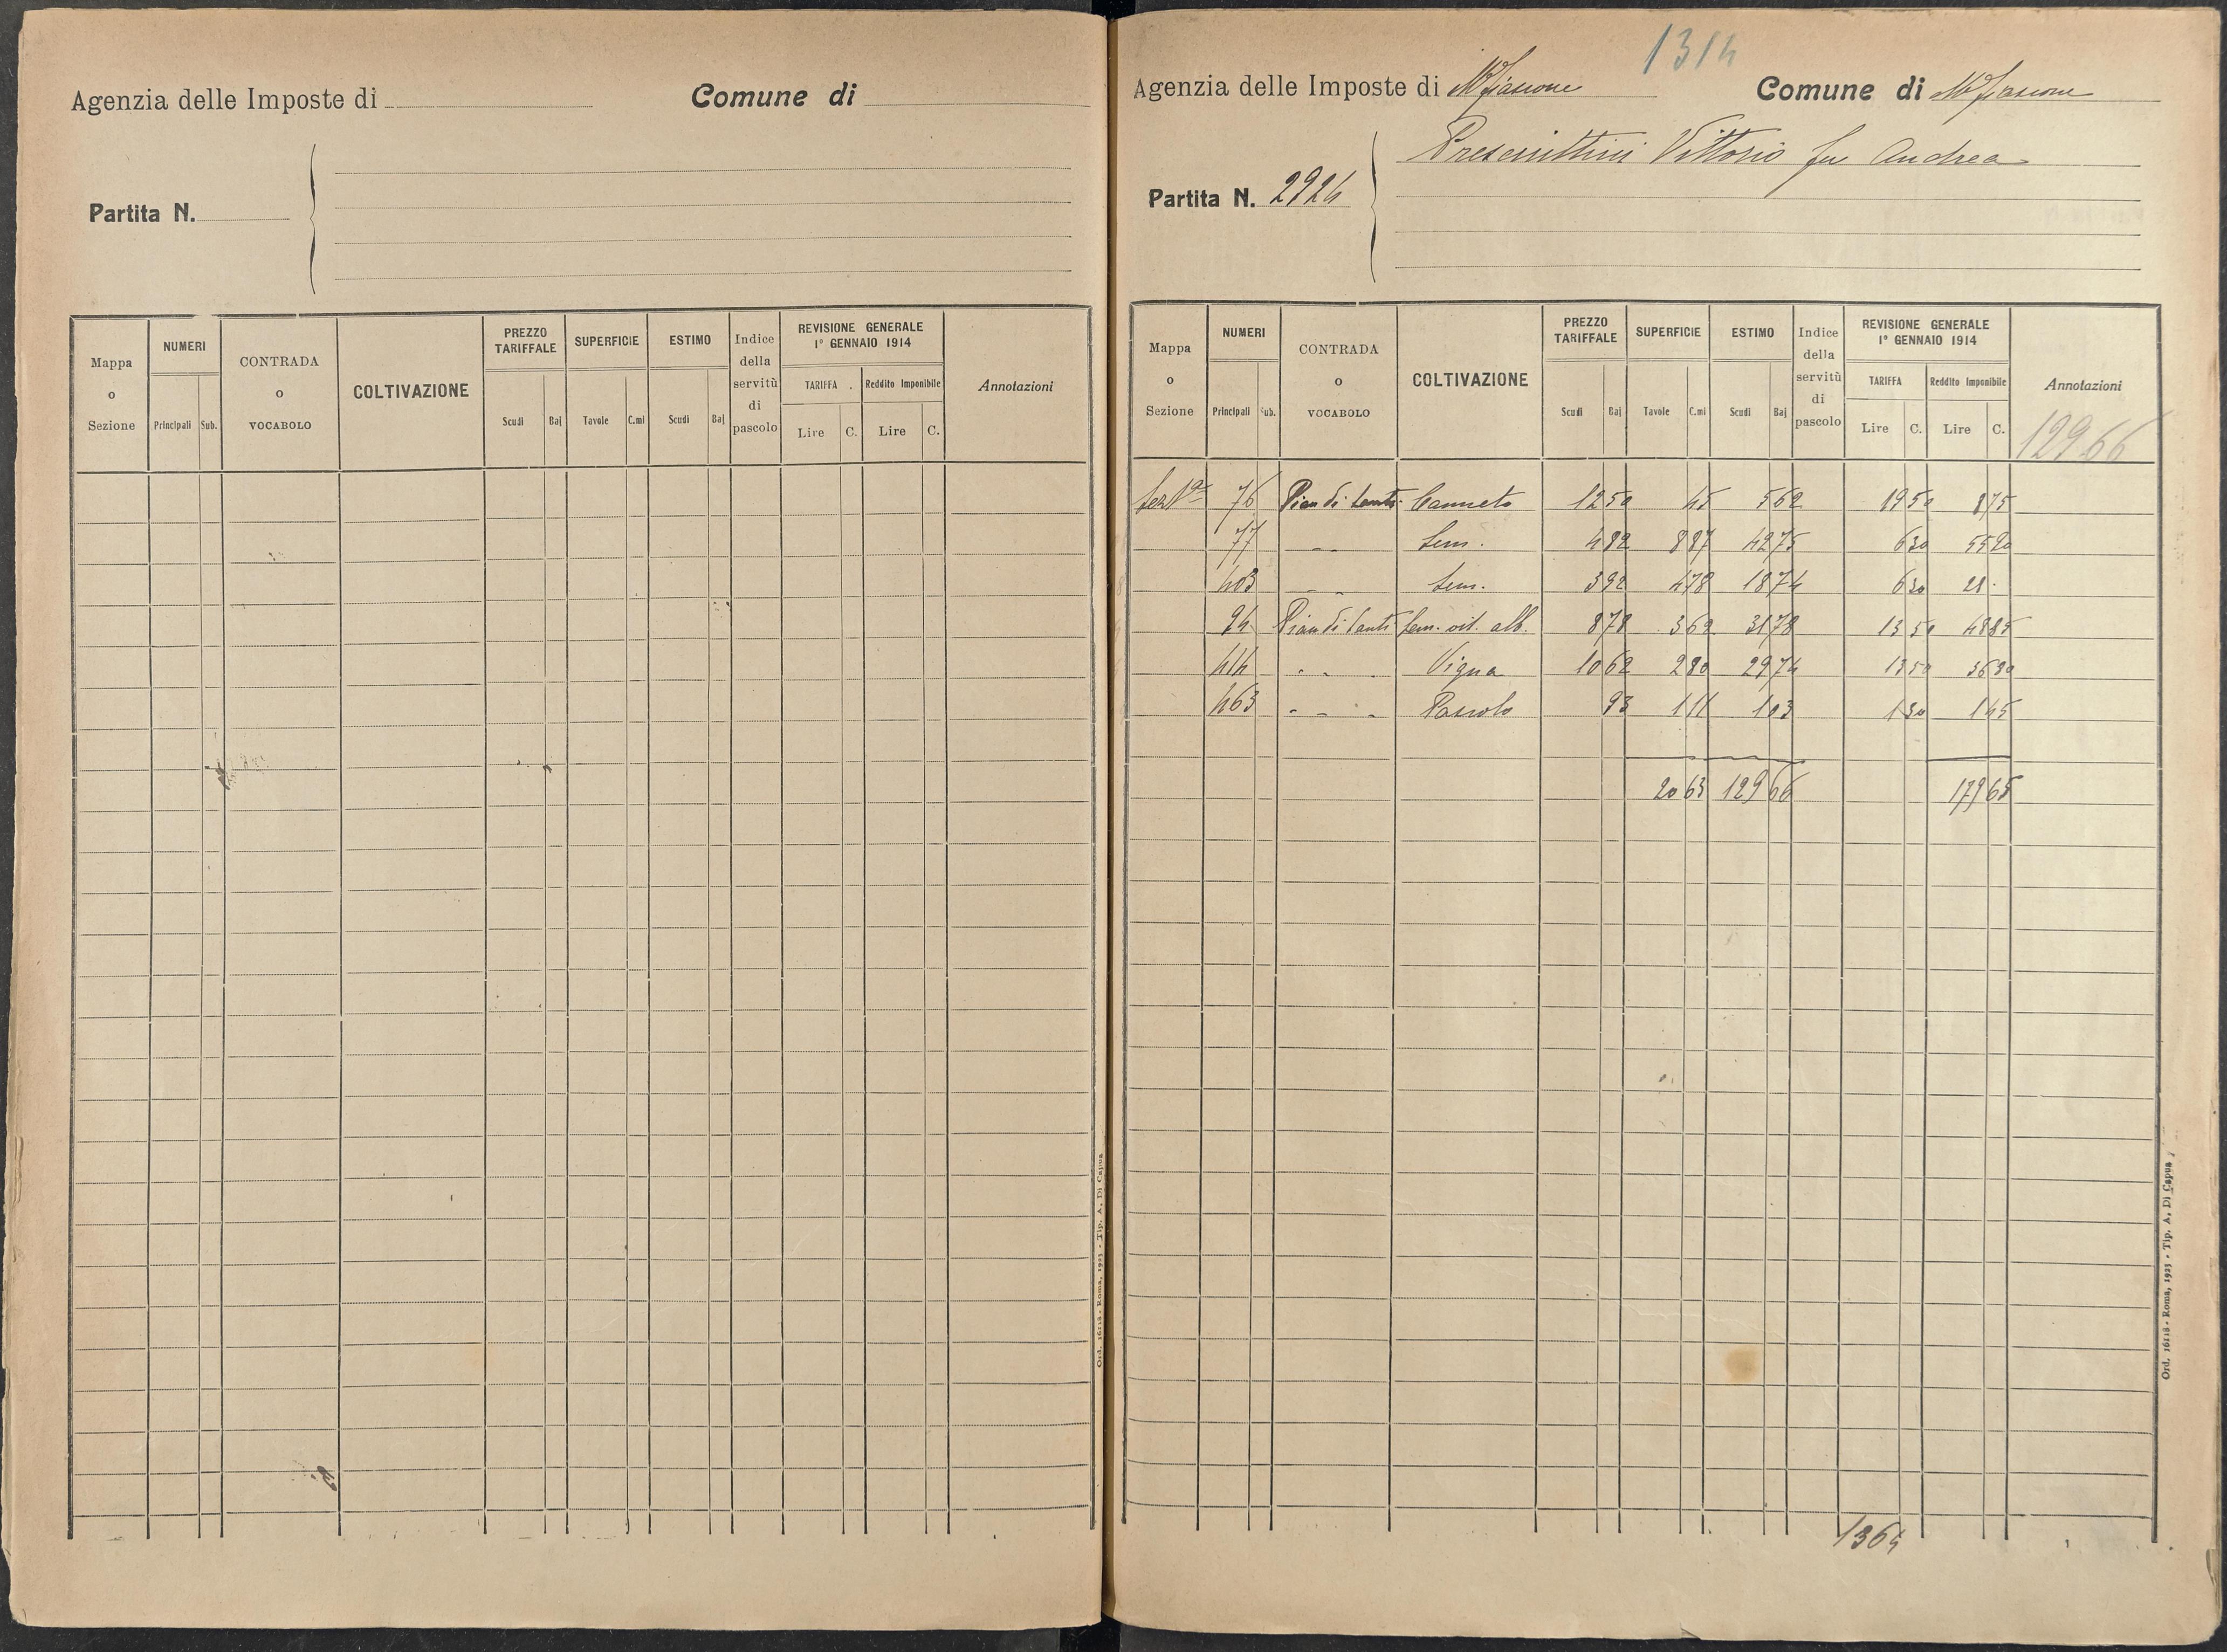 Agenzia delle Imposte di
Comune di
Partita N.
Mappa o Sezione
NUMERI
Principali Sub.
CONTRADA o VOCABOLO
COLTIVAZIONE
PREZZO TARIFFALE
Scudi Baj
SUPERFICIE
Tavole C.mi
ESTIMO
Scudi Baj
Indice della servitù di pascolo
REVISIONE GENERALE 1° GENNAIO 1914
TARIFFA Reddito Imponibile
Lire C. Lire C.
Annotazioni
Ord. 16118 - Roma, 1923 - Tip. A. Di Capua
1314
Agenzia delle Imposte di Mfiascone
Comune di Mfiascone
Vittorio fu Andrea
Partita N. 2924
Mappa o Sezione
NUMERI
Principali Sub.
CONTRADA o VOCABOLO
COLTIVAZIONE
PREZZO TARIFFALE
Scudi Baj
SUPERFICIE
Tavole C.mi
ESTIMO
Scudi Baj
Indice della servitù di pascolo
REVISIONE GENERALE 1° GENNAIO 1914
TARIFFA Reddito Imponibile
Lire C. Lire C.
Annotazioni
129.66
Sez 76 Pian di Canneto 12 50 45 5 62 19 50 8 75
77 Sem. 4 82 8 87 42 75 6 30 55 90
403 Sem. 3 92 4 78 18 74 6 30 28
94 Pian di Sem. vit. alb. 8 78 3 62 31 78 13 50 48 85
414 Vigna 10 62 2 80 29 74 13 50 36 80
463 Pascolo 93 1 11 1 03 1 30 1 45
20 63 129 66 179 65
1364
Ord. 16118 - Roma, 1923 - Tip. A. Di Capua